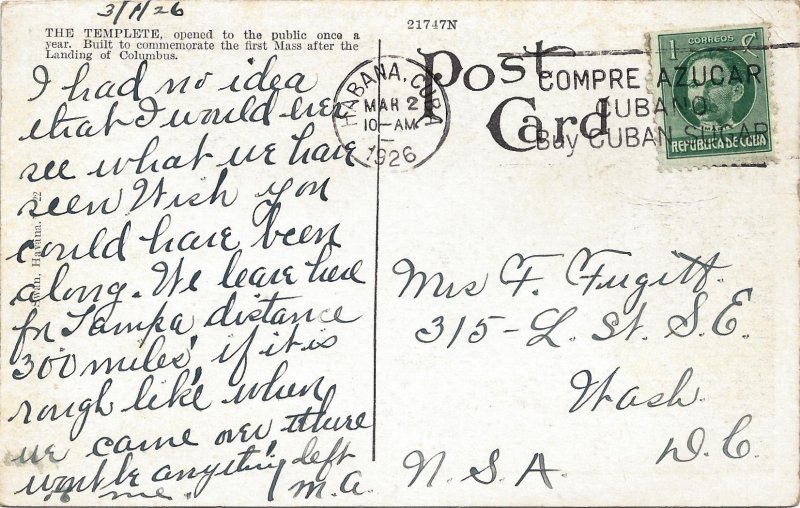 3/1/26
THE TEMPLETE, opened to the public once a
year. Built to commemorate the first Mass after the
Landing of Columbus.
21747N
Post
Card
HABANA, CUBA
MAR 2
10-AM
1926
COMPRE AZUCAR
CUBANO
Buy CUBAN SUGAR
1 CORREOS ¢
REPUBLICA DE CUBA
I had no idea
that I would ever
see what we have
seen Wish you
could have been
along. We leave here
for Tampa distance
300 miles, if it is
rough like when
we came over there
wont be anything left
of me. M.A.
Swan, Havana. 22
Mrs F. Fugitt.
315-L. St. S.E.
Wash.
D.C.
U.S.A.